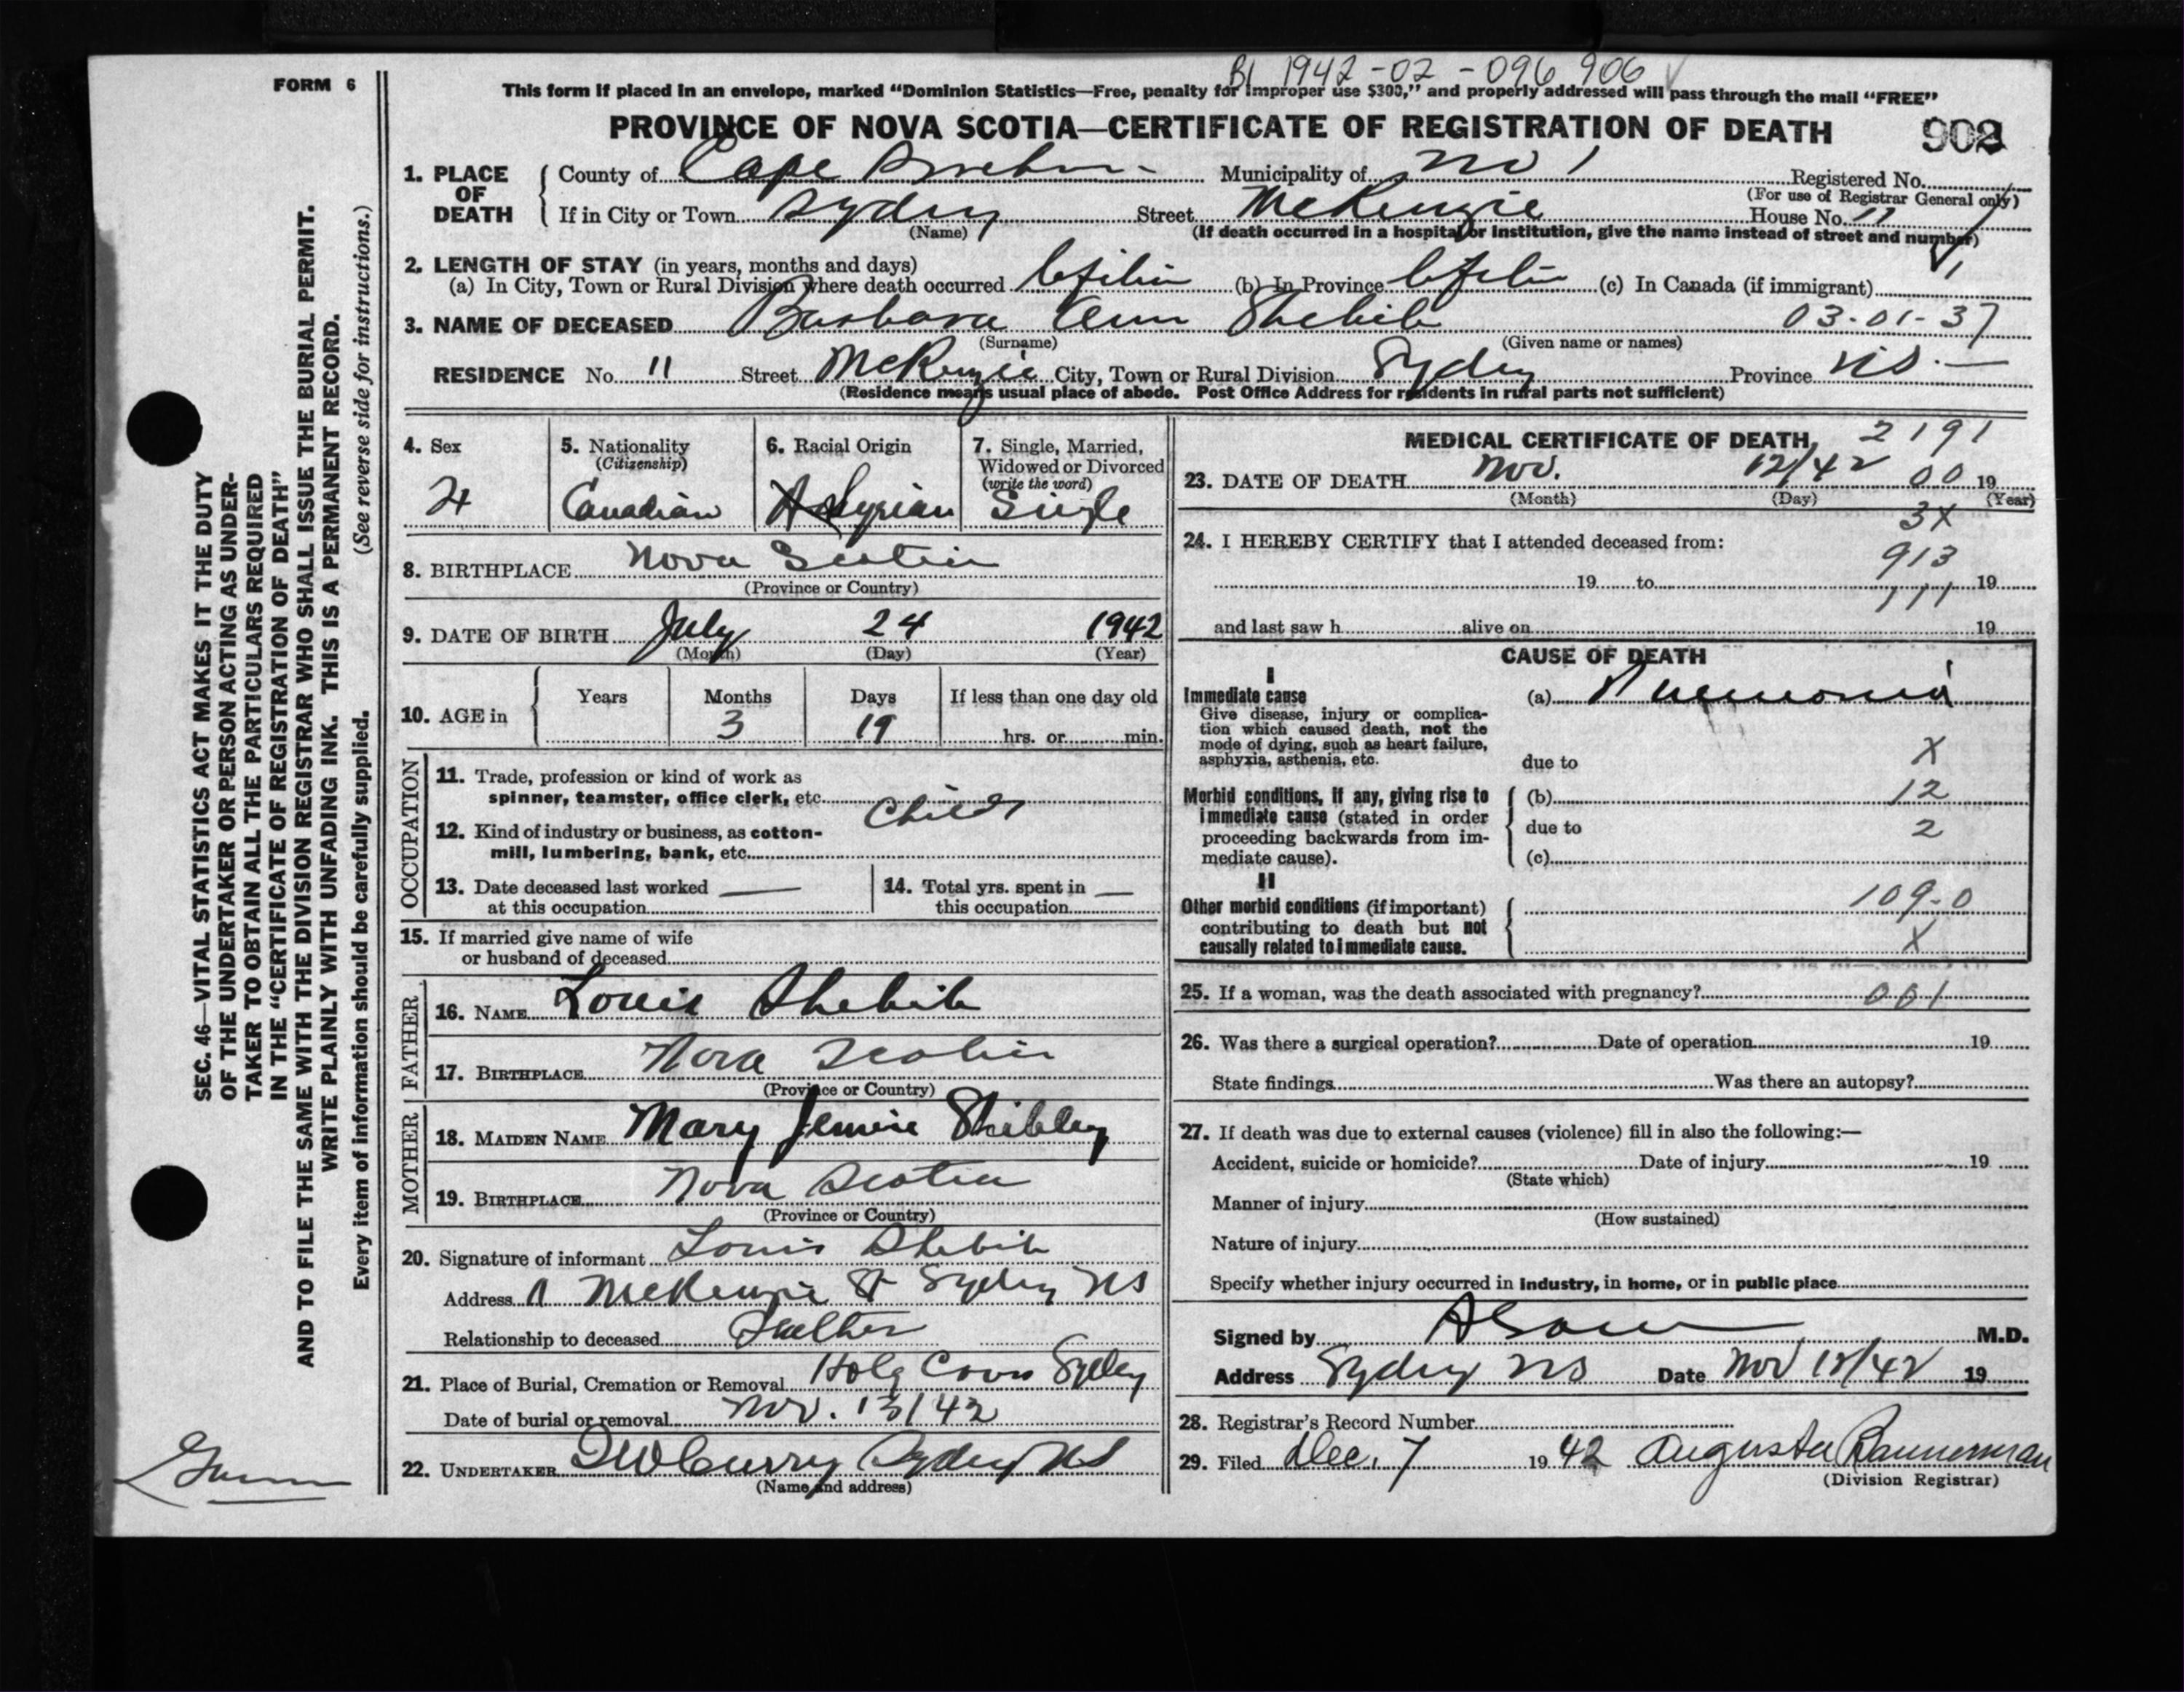 B1 1942-02-096906
FORM 6
This form if placed in an envelope, marked “Dominion Statistics—Free, penalty for improper use $300,” and properly addressed will pass through the mail “FREE”
PROVINCE OF NOVA SCOTIA—CERTIFICATE OF REGISTRATION OF DEATH
1. PLACE OF DEATH
County of Cape Breton Municipality of No 1 Registered No.
(For use of Registrar General only)
If in City or Town Sydney Street McKenzie House No. 11
(Name) (If death occurred in a hospital or institution, give the name instead of street and number)
2. LENGTH OF STAY (in years, months and days)
(a) In City, Town or Rural Division where death occurred Lifetime (b) In Province Lifetime (c) In Canada (if immigrant)
3. NAME OF DECEASED Barbara Ann Shebib 03-01-37
(Surname) (Given name or names)
RESIDENCE No. 11 Street McKenzie City, Town or Rural Division Sydney Province N.S.—
(Residence means usual place of abode. Post Office Address for residents in rural parts not sufficient)
4. Sex
F
5. Nationality
(Citizenship)
Canadian
6. Racial Origin
Syrian
7. Single, Married,
Widowed or Divorced
(write the word)
Single
8. BIRTHPLACE Nova Scotia
(Province or Country)
9. DATE OF BIRTH July 24 1942
(Month) (Day) (Year)
10. AGE in Years Months Days If less than one day old
3 19 hrs. or min.
OCCUPATION
11. Trade, profession or kind of work as
spinner, teamster, office clerk, etc.
Child
12. Kind of industry or business, as cotton-
mill, lumbering, bank, etc.
13. Date deceased last worked —
at this occupation
14. Total yrs. spent in —
this occupation
15. If married give name of wife
or husband of deceased
FATHER
16. NAME Louis Shebib
17. BIRTHPLACE Nova Scotia
(Province or Country)
MOTHER
18. MAIDEN NAME Mary Jennie Shibley
19. BIRTHPLACE Nova Scotia
(Province or Country)
20. Signature of informant Louis Shebib
Address 11 McKenzie St Sydney NS
Relationship to deceased Father
21. Place of Burial, Cremation or Removal Holy Cross Sydney
Date of burial or removal Nov. 13/42
22. UNDERTAKER Curry Sydney NS
(Name and address)
MEDICAL CERTIFICATE OF DEATH 2191
23. DATE OF DEATH Nov. 12/42 00 19
(Month) (Day) (Year)
3X
24. I HEREBY CERTIFY that I attended deceased from:
913
19 to 19
111
and last saw h alive on 19
CAUSE OF DEATH
I
Immediate cause
Give disease, injury or complica-
tion which caused death, not the
mode of dying, such as heart failure,
asphyxia, asthenia, etc.
(a) Pneumonia
due to X
Morbid conditions, if any, giving rise to
immediate cause (stated in order
proceeding backwards from im-
mediate cause).
(b) 12
due to 2
(c)
II
Other morbid conditions (if important)
contributing to death but not
causally related to immediate cause.
109-0
X
25. If a woman, was the death associated with pregnancy? 001
26. Was there a surgical operation? Date of operation 19
State findings Was there an autopsy?
27. If death was due to external causes (violence) fill in also the following:—
Accident, suicide or homicide? Date of injury 19
(State which)
Manner of injury
(How sustained)
Nature of injury
Specify whether injury occurred in industry, in home, or in public place
Signed by M.D.
Address Sydney NS Date Nov 12/42 19
28. Registrar’s Record Number
29. Filed Dec. 7 1942 Augusta Bannerman
(Division Registrar)
SEC. 46—VITAL STATISTICS ACT MAKES IT THE DUTY
OF THE UNDERTAKER OR PERSON ACTING AS UNDER-
TAKER TO OBTAIN ALL THE PARTICULARS REQUIRED
IN THE “CERTIFICATE OF REGISTRATION OF DEATH”
AND TO FILE THE SAME WITH THE DIVISION REGISTRAR WHO SHALL ISSUE THE BURIAL PERMIT.
WRITE PLAINLY WITH UNFADING INK. THIS IS A PERMANENT RECORD.
Every item of information should be carefully supplied. (See reverse side for instructions.)